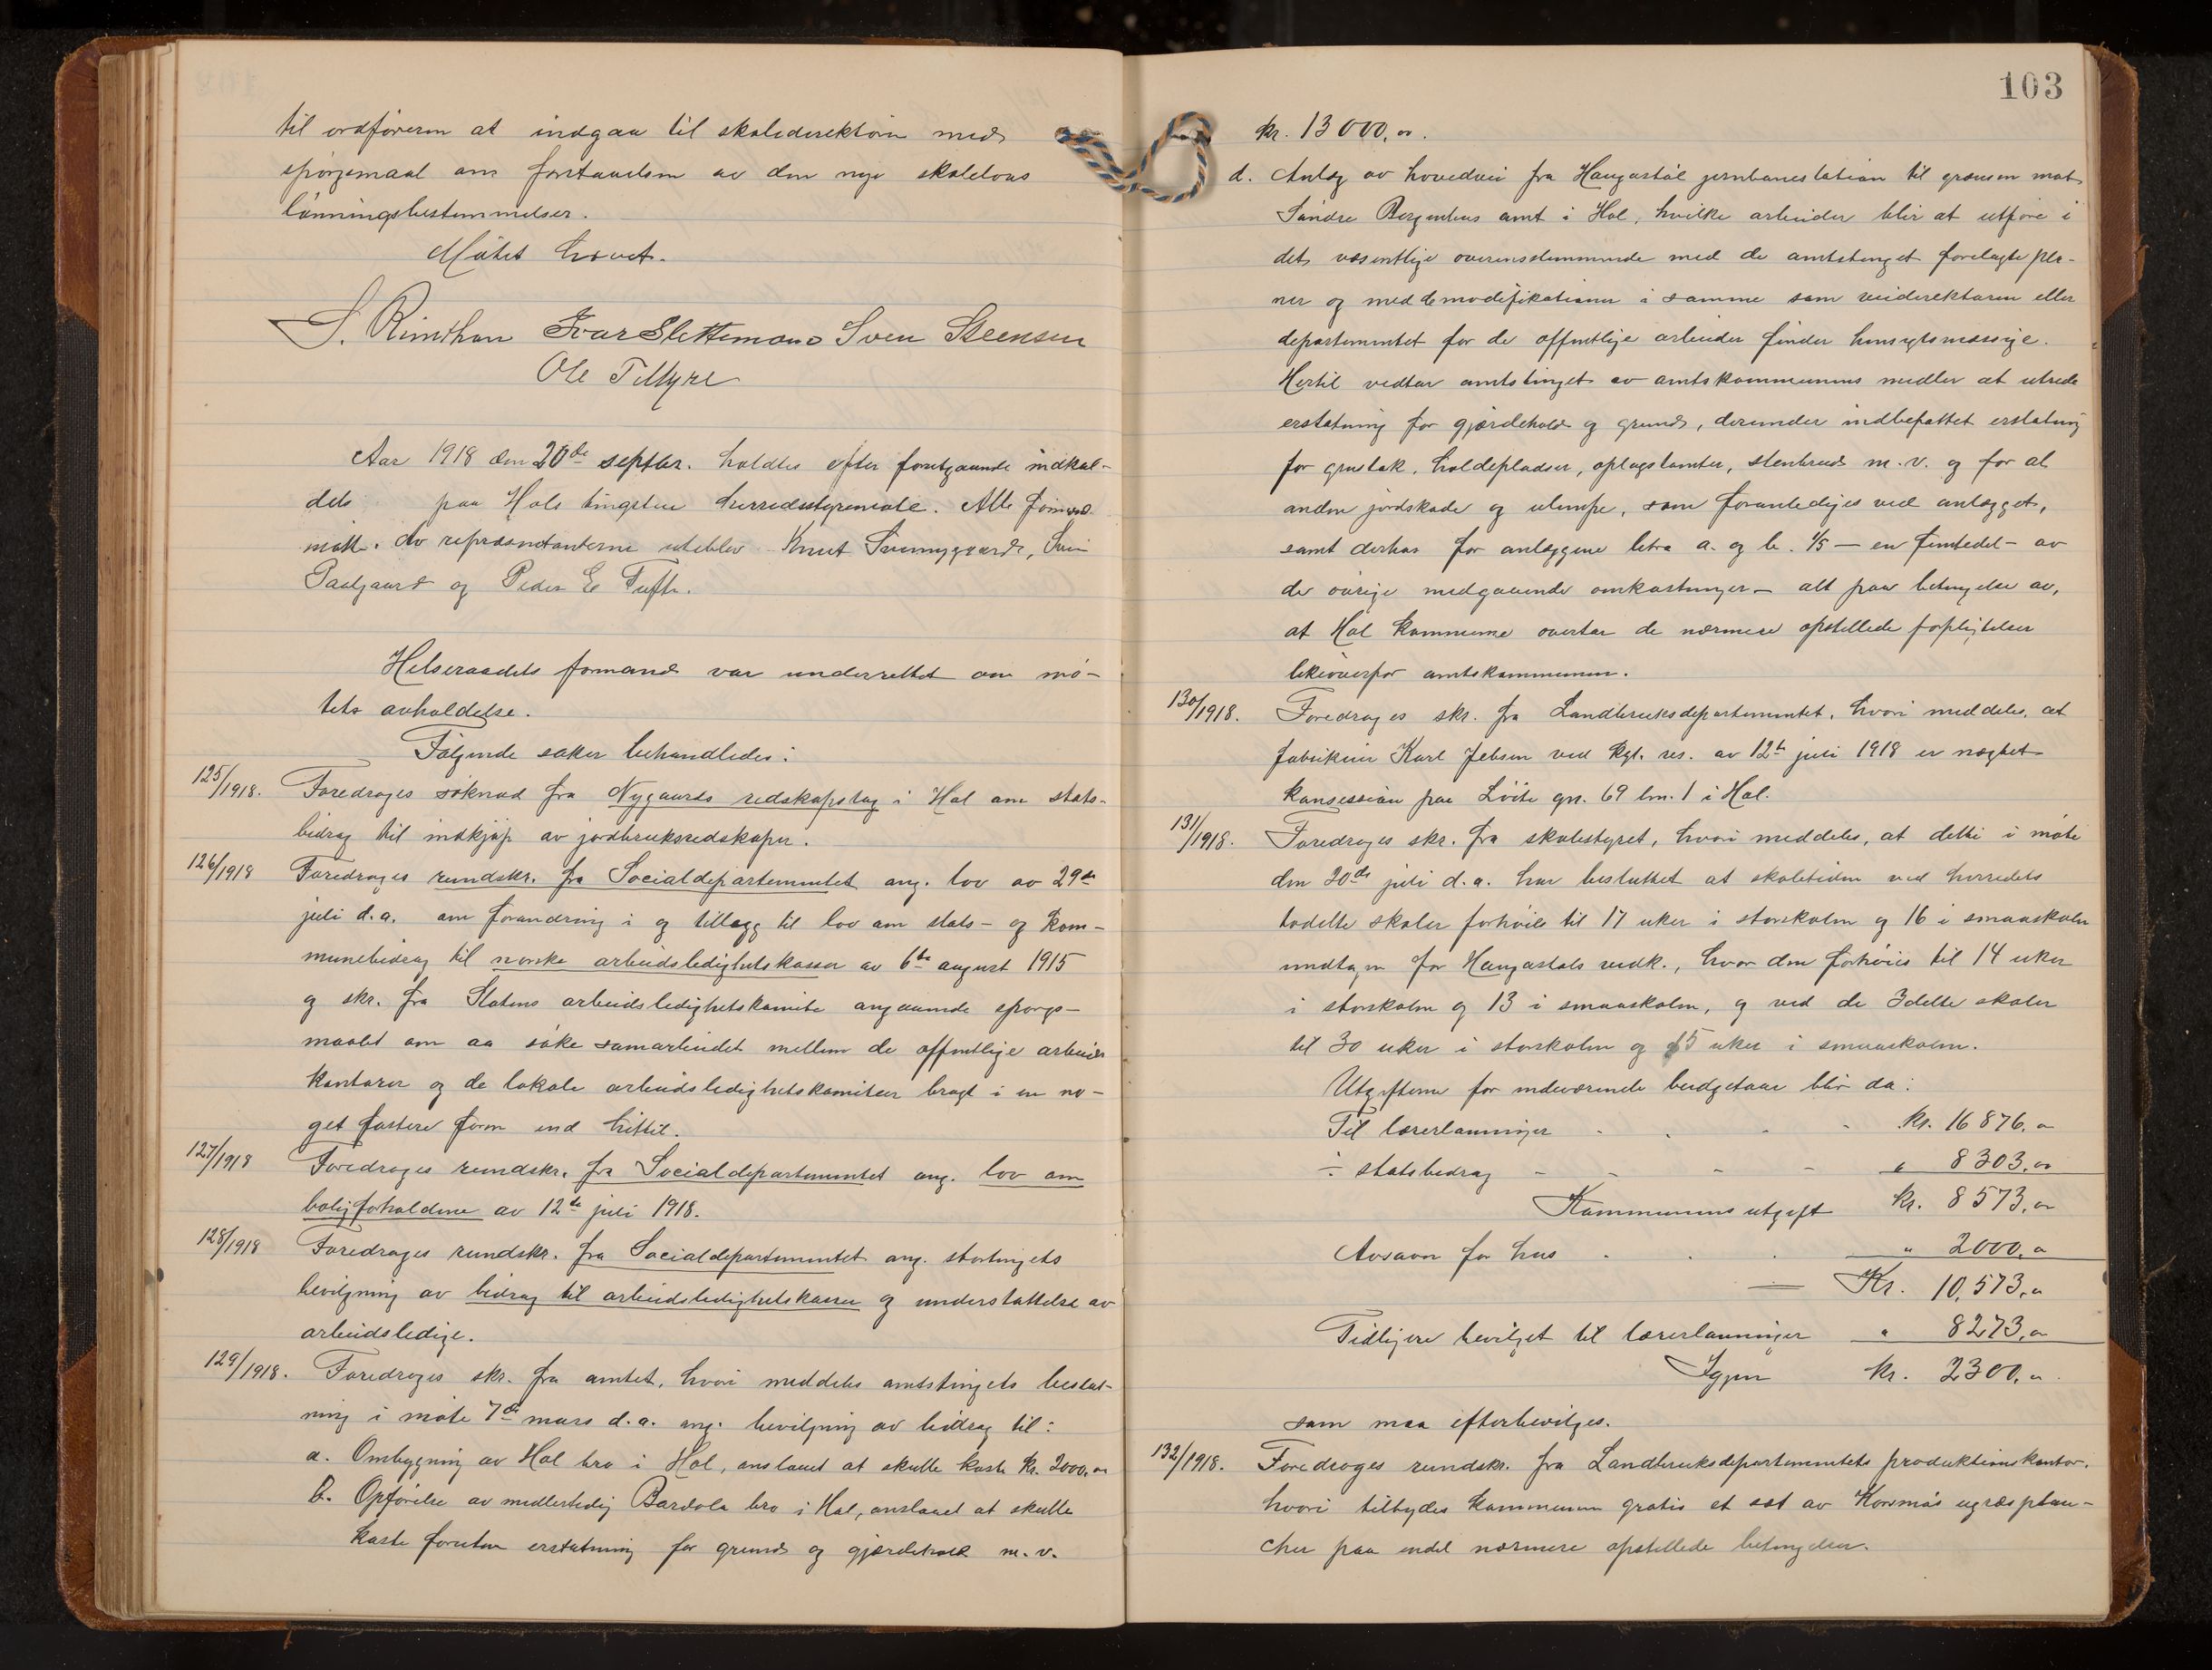 til ordföreren at indgaa til skoledirektören med
spörgsmaal om forstaaelsen av den nye skolelovs
lönningsbestemmelser.
Mötet hævet.
S. Rimthun Ivar Slettemoen Sven Steensen
Ole T Myre
Aar 1918 den 20de septbr. holdtes efter foregaaende indkal-
delse paa Hols tingstue herredsstyremöte. Alle formænd
mötte. Av repræsentanterne uteblev Knut Sunnygaard, Svein
Paalgaard og Peder E Tufte.
Helseraadets formand var underrettet om mö-
tets avholdelse.
Fölgende saker behandledes:
125/1918. Foredrages söknad fra Nygaards redskapslag i Hol om stats-
bidrag til indkjöp av jordbruksredskaper.
126/1918 Foredrages rundskr. fra Socialdepartementet ang. lov av 29de
juli d.a. om forandring i og tillægg til lov om stats- og kom-
munebidrag til norske arbeidsledighetskasser av 6te august 1915
og skr. fra Statens arbeidsledighetskomite angaaende spörgs-
maalet om aa söke samarbeidet mellem de offentlige arbeids
kontorer og de lokale arbeidsledighetskomiteer bragt i en no-
get fastere form end hittil.
127/1918 Foredrages rundskr. fra Socialdepartementet ang. lov om
boligforholdene av 12te juli 1918.
128/1918 Foredrages rundskr. fra Socialdepartementet ang. stortingets
bevilgning av bidrag til arbeidsledighetskasser og understöttelse av
arbeidsledige.
129/1918. Foredrages skr. fra amtet, hvori meddeles amtstingets beslut-
ning i möte 7de mars d.a. ang. bevilgning av bidrag til:
a. Ombygning av Hol bro i Hol, anslaaet at skulle koste kr. 2000,00
b. Opförelse av midlertidig Bardola bro i Hol, anslaaet at skulle
koste foruten erstatning for grund og gjærdehold m.v.
103
kr. 13000,00.
d. Anlæg av hovedvei fra Haugastöl jernbanestation til grænsen mot
Söndre Bergenhus amt i Hol, hvilke arbeider blir at utföre i
det væsentlige overensstemmende med de amtstinget forelagte pla-
ner og med de modifikationer i samme som veidirektören eller
departementet for de offentlige arbeider finder hensigtsmæssige.
Hertil vedtar amtstinget av amtskommunens midler at utrede
erstatning for gjærdehold og grund, derunder indbefattet erstatning
for grustak, holdepladser, oplagstomter, stenbrud m.v. og for al
anden jordskade og ulempe, som foranlediges ved anlægget,
samt derhos for anlæggene litra a. og b. 1/5 - en femtedel - av
de övrige medgaaende omkostninger - alt paa betingelse av,
at Hol kommune overtar de nærmere opstillede forpligtelser
likeoverfor amtskommunen.
130/1918. Foredrages skr. fra Landbruksdepartementet, hvori meddeles, at
fabrikeier Karl Jebsen ved kgl. res. av 12te juli 1918 er nægtet
konsession paa Löite gn. 69 bn. 1 i Hol.
131/1918. Foredrages skr. fra skolestyret, hvori meddeles, at dette i möte
den 20de juli d.a. har besluttet at skoletiden ved herredets
todelte skoler forhöies til 17 uker i storskolen og 16 i smaaskolen
undtagen for Haugastöls vedk., hvor den forhöies til 14 uker
i storskolen og 13 i smaaskolen, og ved de 3delte skoler
til 30 uker i storskolen og 15 uker i smaaskolen.
Utgiftene for indeværende budgetaar blir da:
Til lærerlønninger . . . . kr. 16876,00
÷ statsbidrag - - - - " 8303,00
Kommunens utgift kr. 8573,00
Avsavn for hus . . . " 2000,00
Kr. 10,573,00
Tidligere bevilget til lærerlønninger " 8273,00
Igjen kr. 2300,00.
som maa efterbevilges.
132/1918. Foredrages rundskr. fra Landbruksdepartementets produktionskontor,
hvori tilbydes kommunen gratis et sæt av Korsmos ugræsplan-
cher paa endel nærmere opstillede betingelser.